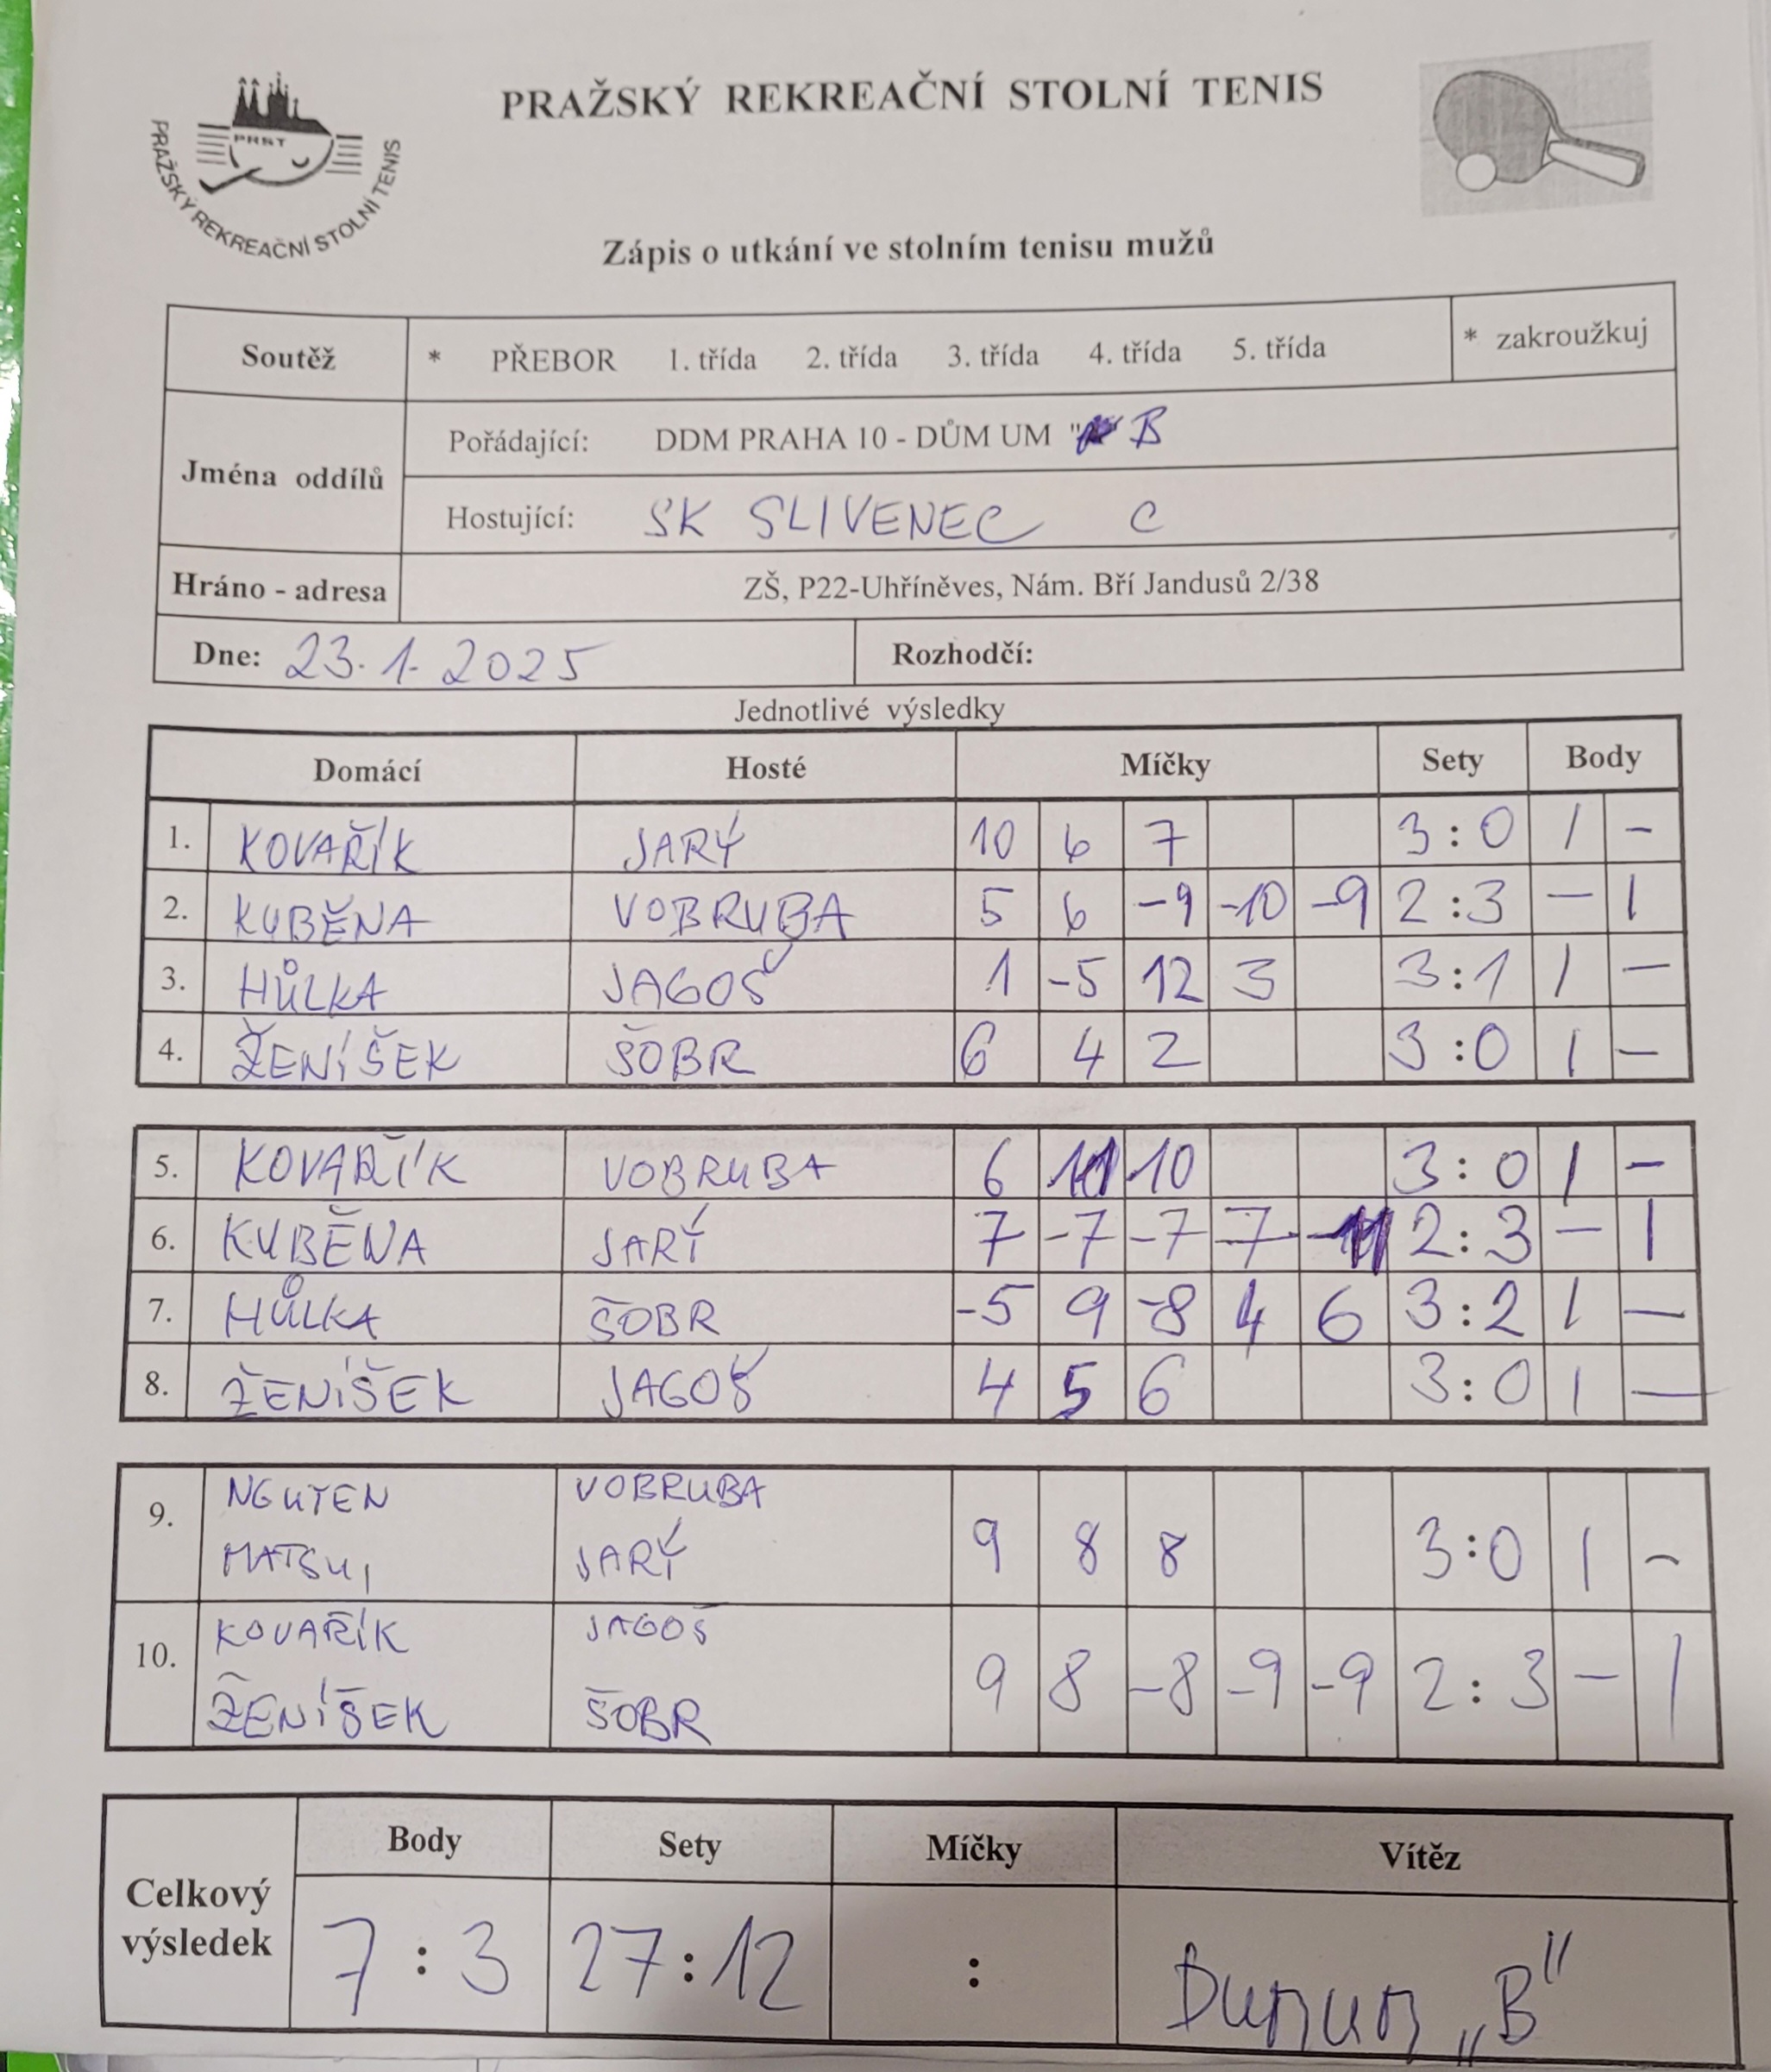 PRAŽSKÝ REKREAČNÍ STOLNÍ TENIS
PRST
PRAŽSKÝ REKREAČNÍ STOLNÍ TENIS
Zápis o utkání ve stolním tenisu mužů
Soutěž * PŘEBOR 1. třída 2. třída 3. třída 4. třída 5. třída * zakroužkuj
Jména oddílů
Pořádající: DDM PRAHA 10 - DŮM UM " B
Hostující: SK SLIVENEC C
Hráno - adresa ZŠ, P22-Uhříněves, Nám. Bří Jandusů 2/38
Dne: 23.1.2025 Rozhodčí:
Jednotlivé výsledky
Domácí Hosté Míčky Sety Body
1. KOVAŘÍK JARÝ 10 6 7 3:0 1 -
2. KUBĚNA VOBRUBA 5 6 -9 -10 -9 2:3 - 1
3. HŮLKA JAGOŠ 1 -5 12 3 3:1 1 -
4. ŽENÍŠEK ŠOBR 6 4 2 3:0 1 -
5. KOVAŘÍK VOBRUBA 6 11 10 3:0 1 -
6. KUBĚNA JARÝ 7 -7 -7 7 -11 2:3 - 1
7. HŮLKA ŠOBR -5 9 -8 4 6 3:2 1 -
8. ŽENÍŠEK JAGOŠ 4 5 6 3:0 1 -
9. NGUYEN VOBRUBA
MATSUI JARÝ 9 8 8 3:0 1 -
10. KOVAŘÍK JAGOŠ
ŽENÍŠEK ŠOBR 9 8 -8 -9 -9 2:3 - 1
Celkový výsledek
Body Sety Míčky Vítěz
7:3 27:12 : Dumum „B"